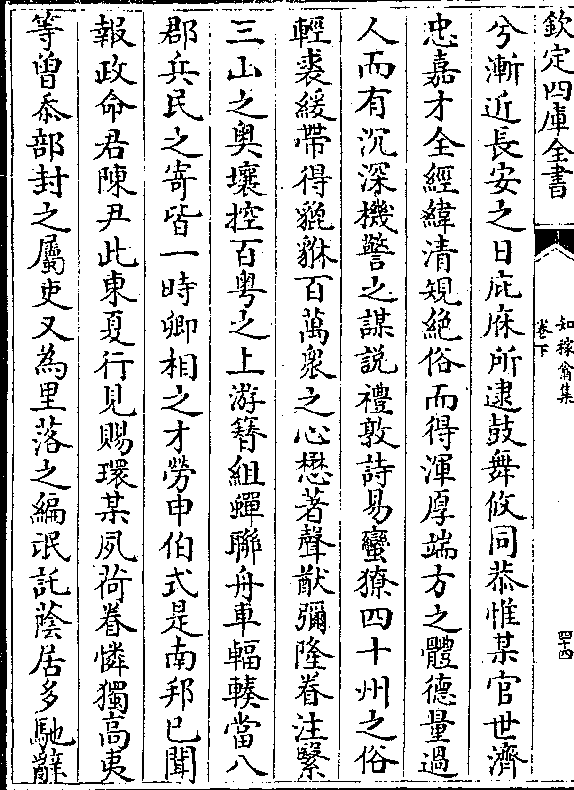 欽定四庫全書
如稼翁集
卷下
四十四
兮漸近長安之日庇庥所逮鼓舞攸同恭惟某官世濟
忠嘉才全經緯清規絶俗而得渾厚端方之體德量過
人而有沉深機警之謀說禮敦詩易蠻獠四十州之俗
輕裘緩帶得貔貅百萬衆之心懋著聲猷彌隆眷注緊
三山之奥壤控百粤之上游簪組蟬聯舟車輻輳當八
郡兵民之寄皆一時卿相之才勞申伯式是南邦已聞
報政命君陳尹此東夏行見賜環某夙荷眷憐獨高夷
等曽忝部封之屬吏又為里落之編氓託蔭居多馳辭